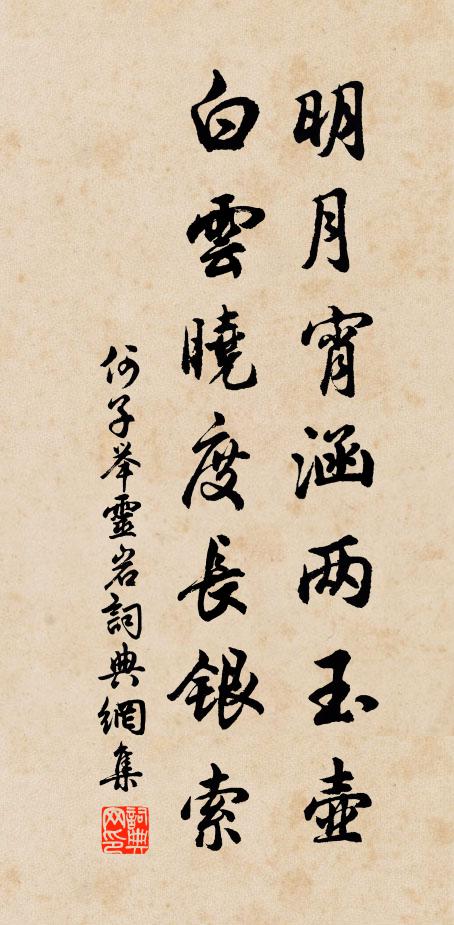 明月宵涵两玉壺
白雲曉度長銀索
何子举靈岩詞典網集
詞典网印